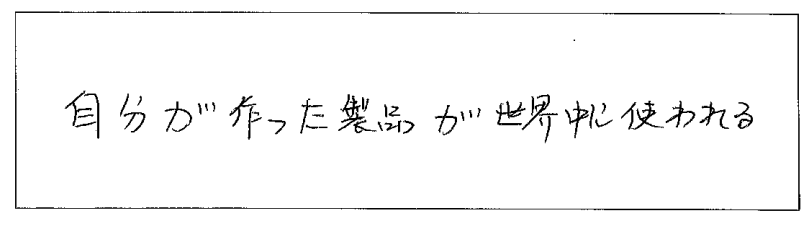 自分が作った製品が世界中に使われる